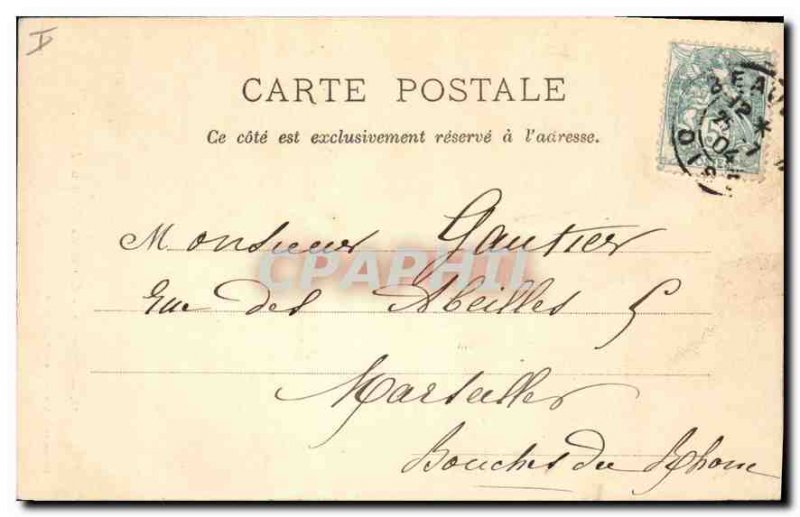 CARTE POSTALE
Ce côté est exclusivement réservé à l'adresse.
EAU
12 *
7
04
OIS
Monsieur Gautier
CPAPHIL
Rue des Abeilles 5
Marseille
Bouches du Rhone